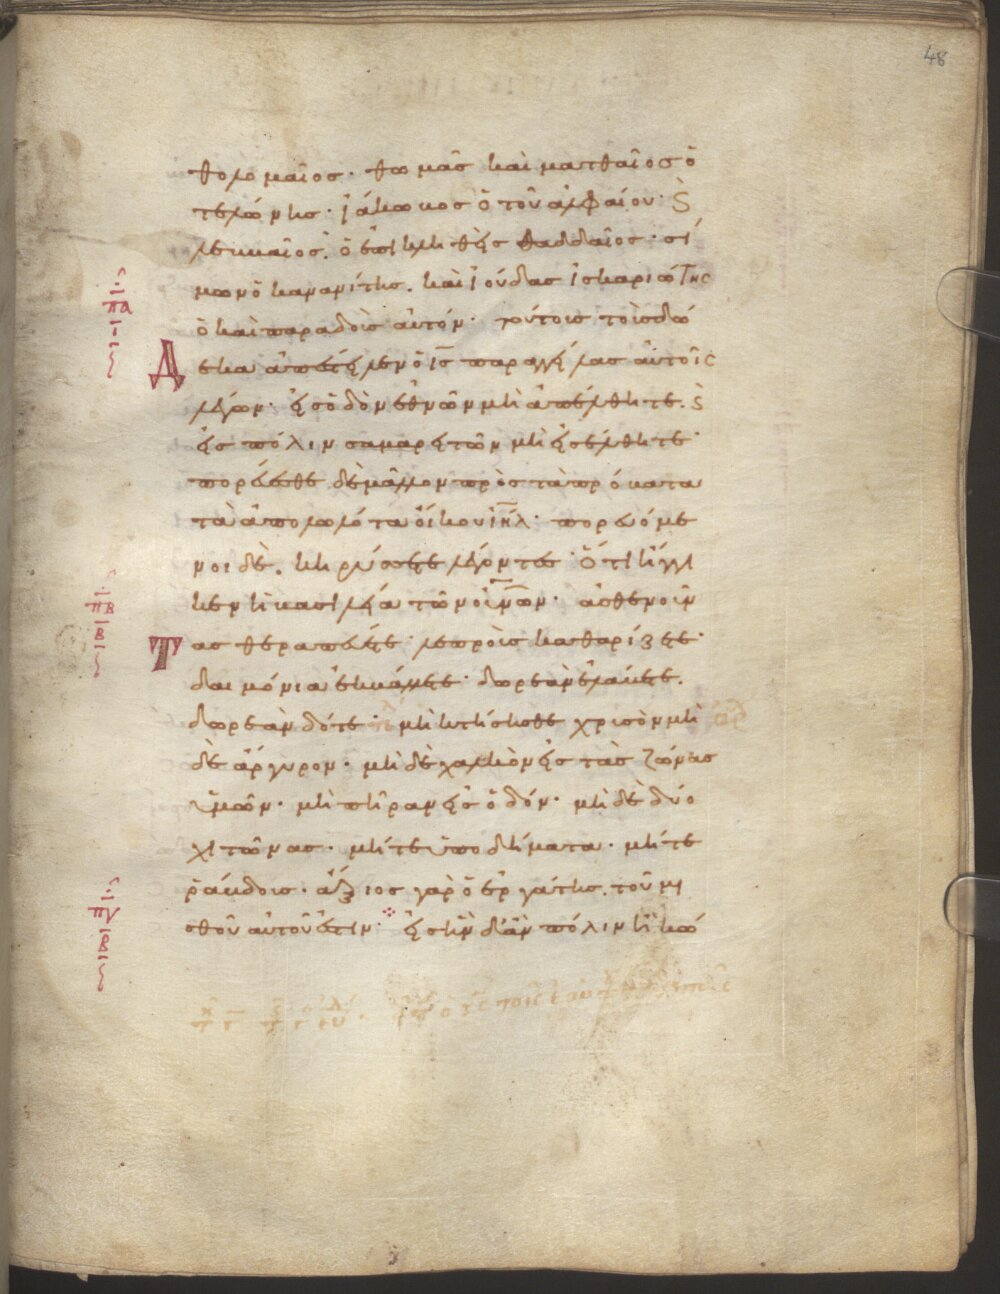 48
θολομαῖος· θωμᾶσ καὶ ματθαῖοσ ὁ
τελώνησ· ἰάκωβοσ ὁ τοῦ ἀλφαίου· ϗ
λεββαῖοσ, ὁ ἐπικληθεὶσ θαδδαῖοσ· σί
μων ὁ κανανίτησ. καὶ ἰούδασ ἰσκαριώτης
πα
ὁ καὶ παραδοὺσ αὐτόν· τούτουσ τοὺσ δώ
δεκα ἀπέστειλεν ὁ ι̅σ̅ παραγγείλασ αὐτοῖς
λέγων· εἰσ ὁδὸν ἐθνῶν μὴ ἀπέλθητε. ϗ
εἰσ πόλιν σαμαρειτῶν μὴ εἰσέλθητε·
πορεύεσθε δὲ μᾶλλον πρὸσ τὰ πρόβατα
τὰ ἀπολωλότα οἴκου ι̅η̅λ̅· πορευόμε
νοι δὲ, κηρύσσετε λέγοντεσ· ὅτι ἤγγι
πβ
β
κεν ἡ βασιλεία τῶν οὐ̅ν̅ῶν· ἀσθενοῦν
τασ θεραπεύετε· λεπροὺσ καθαρίζετε·
δαιμόνια ἐκβάλλετε· δωρεὰν ἐλάβετε.
δωρεὰν δότε· μὴ κτήσησθε χρυσὸν μὴ
δὲ ἄργυρον· μὴ δὲ χαλκὸν εἰσ τὰσ ζώνασ
ὑμῶν· μὴ πήραν εἰσ ὁδόν· μὴ δὲ δύο
χιτῶνασ· μήτε ὑποδήματα· μήτε
πγ
β
ῥάβδουσ· ἄξιοσ γὰρ ὁ ἐργάτησ, τοῦ μι
σθοῦ αὐτοῦ ἐστιν· εἰσ ἣν δ' ἂν πόλιν ἢ κώ